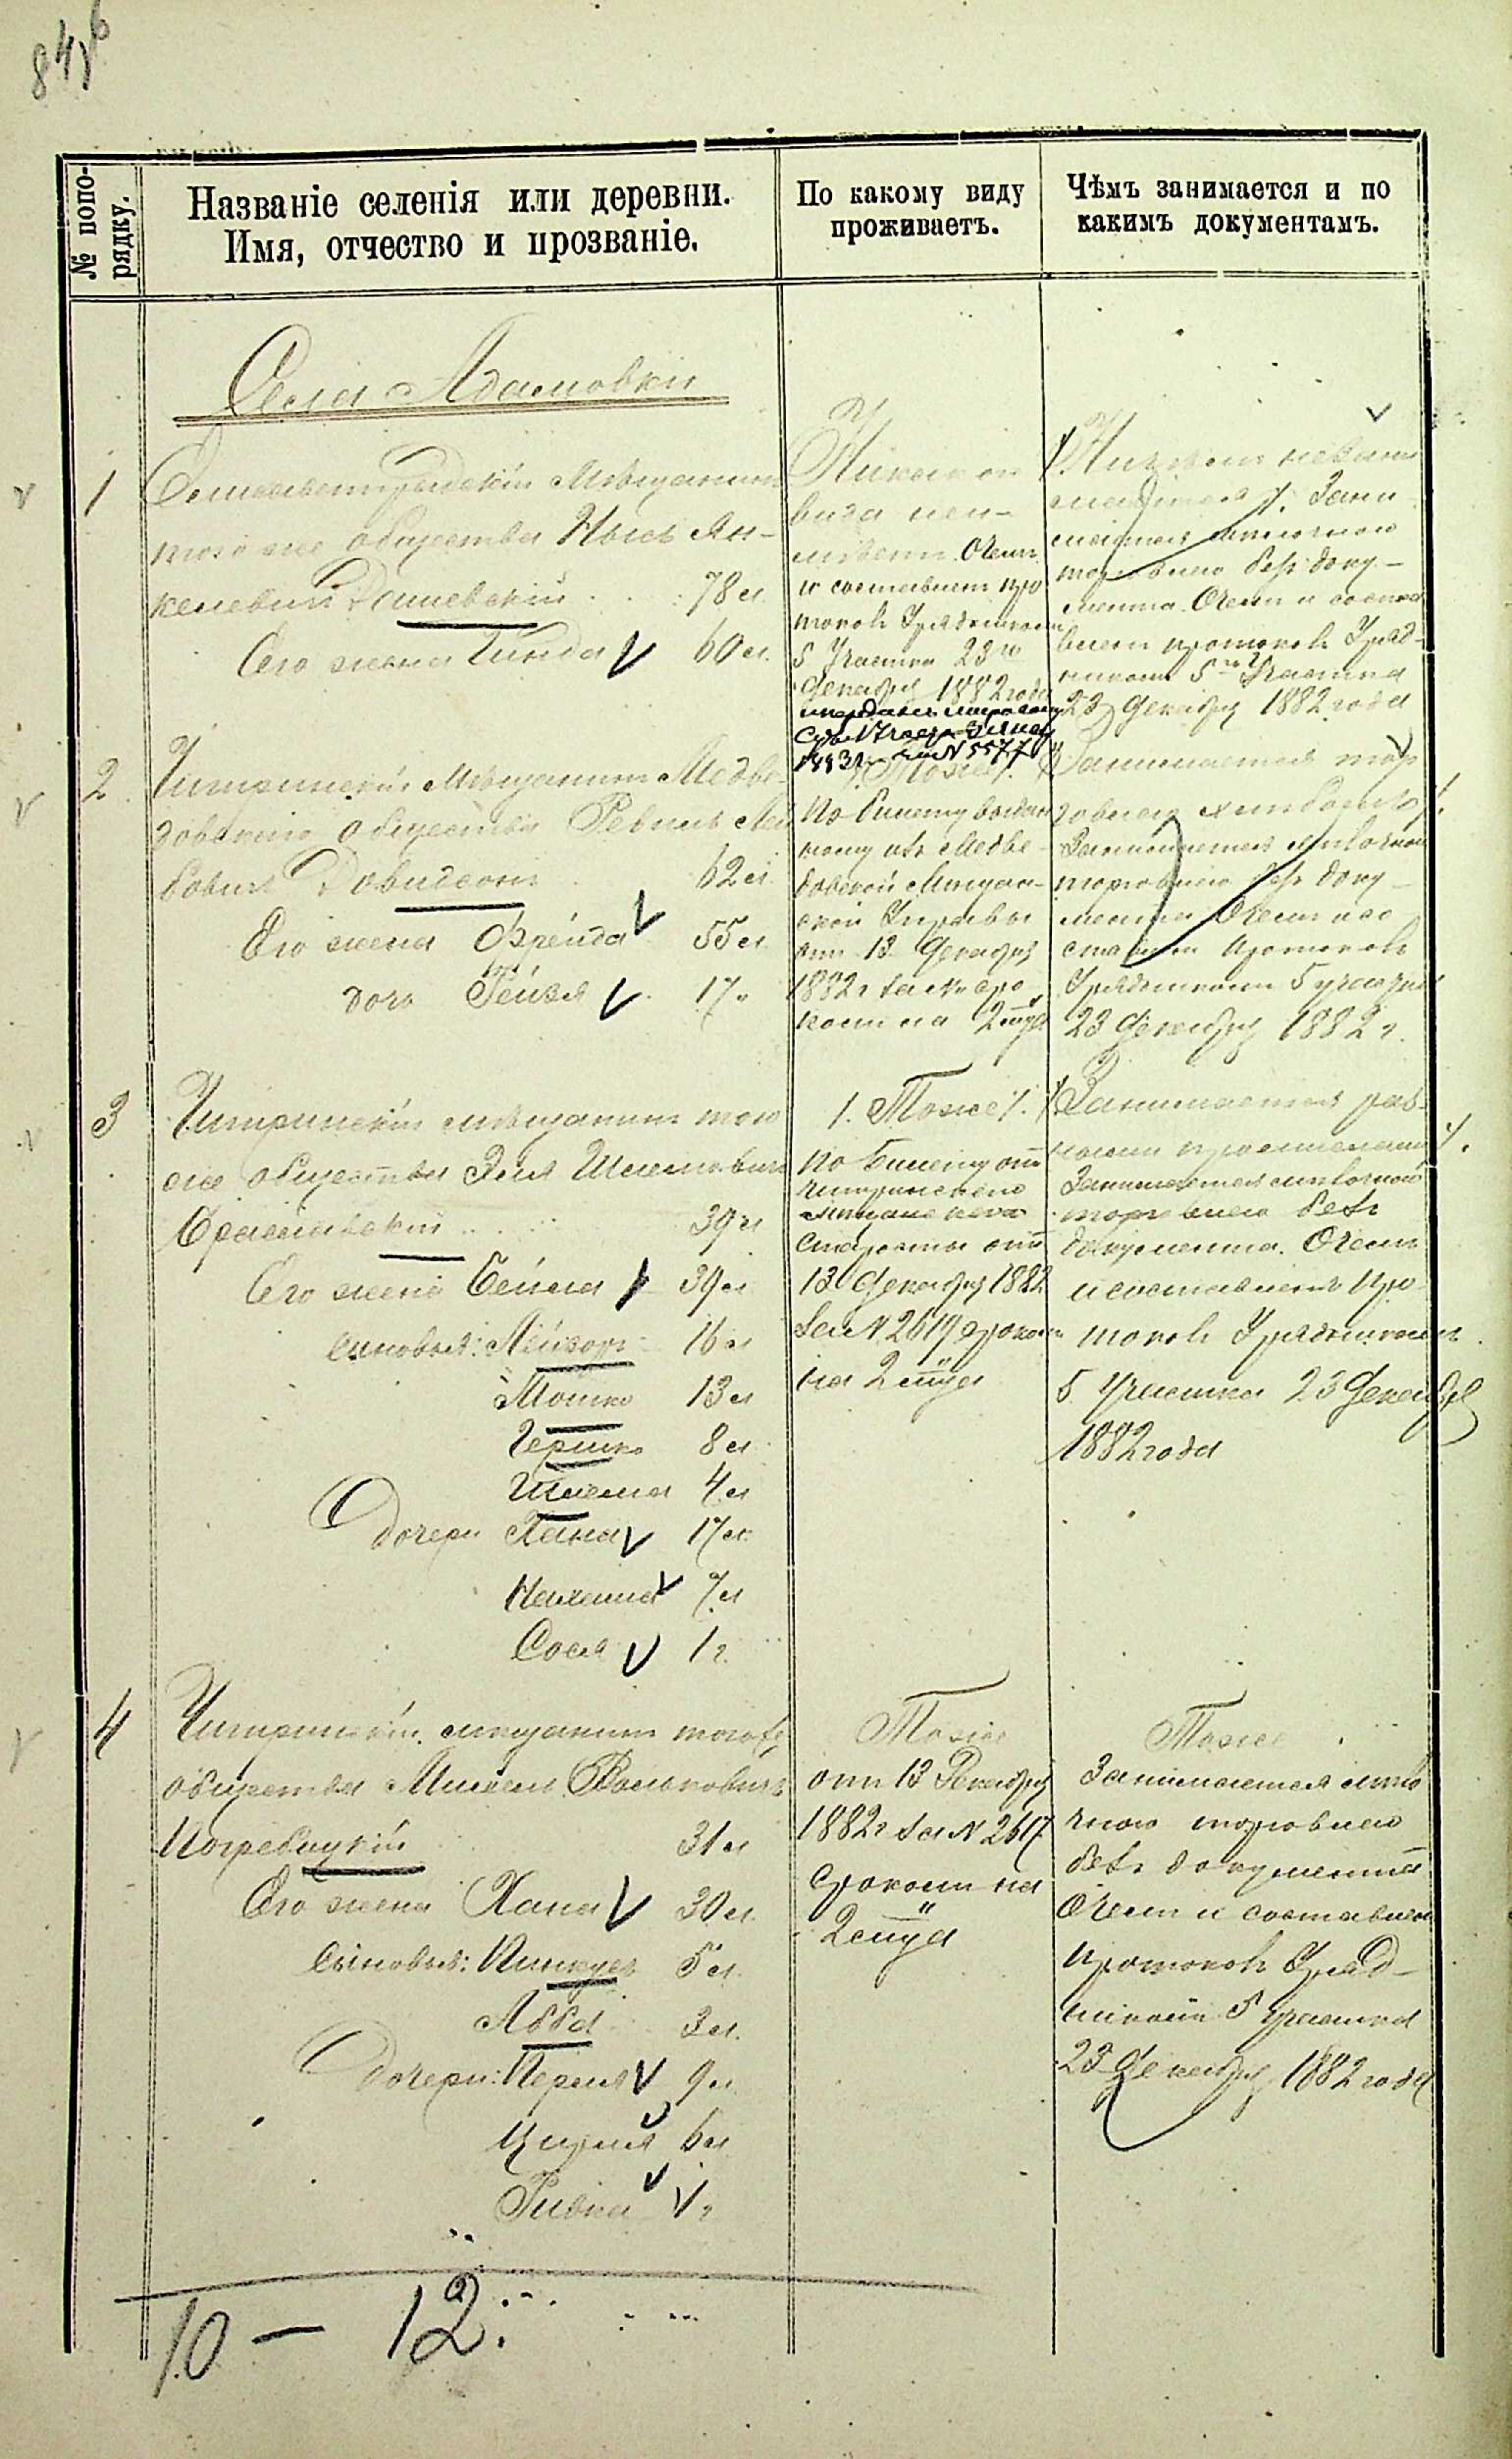 84
№ попо-
рядку.
Названіе селенія или деревни.
Имя, отчество и прозваніе.
По какому виду
проживаетъ.
Чѣмъ занимается и по
какимъ документамъ.
Села Адамовки
1
Мѣщанинъ
того же общества Ян-
келевичъ Дашевскій 78 л.
Его жена Гинда 60 л.
Никакого
вида не и-
мѣетъ. О чемъ
и составленъ про
токолъ Урядникомъ
5 Участка 23го
Декабря 1882 года
1883 г. за N 5577
Ничѣмъ незани
мается ⁒ Зани
мается мелочною
торговлею безъ доку-
мента. О чемъ и соста
вленъ протоколъ Уряд-
никомъ 5го Участка
23 Декабря 1882 года
2
Чигринскій Мѣщанинъ Медве-
довскаго общества Лей
бовичъ Давидсонъ 62 л.
Его жена Фрейда 55 л.
дочь Рейзя 17 "
⁒ Тоже ⁒
По билету выдан
ному изъ Медве-
довской Мѣщан-
ской Управы
отъ 13 Декабря
1882 г. за № сро
комъ на 2 м-ца
Занимается тор
говлею хлѣбомъ ⁒
Занимается мелочною
торговлею безъ доку-
мента О чемъ и со
ставленъ протоколъ
Урядникомъ 5 участка
23 Декабря 1882 г.
3
Чигринскій мѣщанинъ того
же общества Эля Шлемовичъ
39 л
Его жена Бейла 39 л
сыновья: Лейзоръ 16 л
Мошко 13 л
Гершко 8 л
Шлема 4 л
Дочери Хана 17 л.
Нехама 7 л
Сося 1 г.
⁒ Тоже ⁒
По билету отъ
чигринскаго
мѣщанскаго
старосты отъ
13 Декабря 1882
за N 2619 срокомъ
на 2 м-ца
Занимается раз-
ными промыслами ⁒
Занимается мелочною
торговлею безъ
документа. О чемъ
и составленъ про-
токолъ Урядникомъ
5 участка 23 Декабря
1882 года
4
Чигринскій мѣщанинъ того же
общества
Погребицкій 31 л
Его жена Хана 30 л.
Сыновья: Пинкусъ 5 л.
Абба 3 л.
Дочери: Перля 9 л.
Цирля 6 л
Ривка 1 г
Тоже
отъ 13 Декабря
1882 г за N 2617
срокомъ на
2 м-ца
Тоже
Занимается мело
чною торговлею
безъ документа
О чемъ и составленъ
протоколъ Уряд-
никомъ 5 участка
23 Декабря 1882 года
10 — 12.